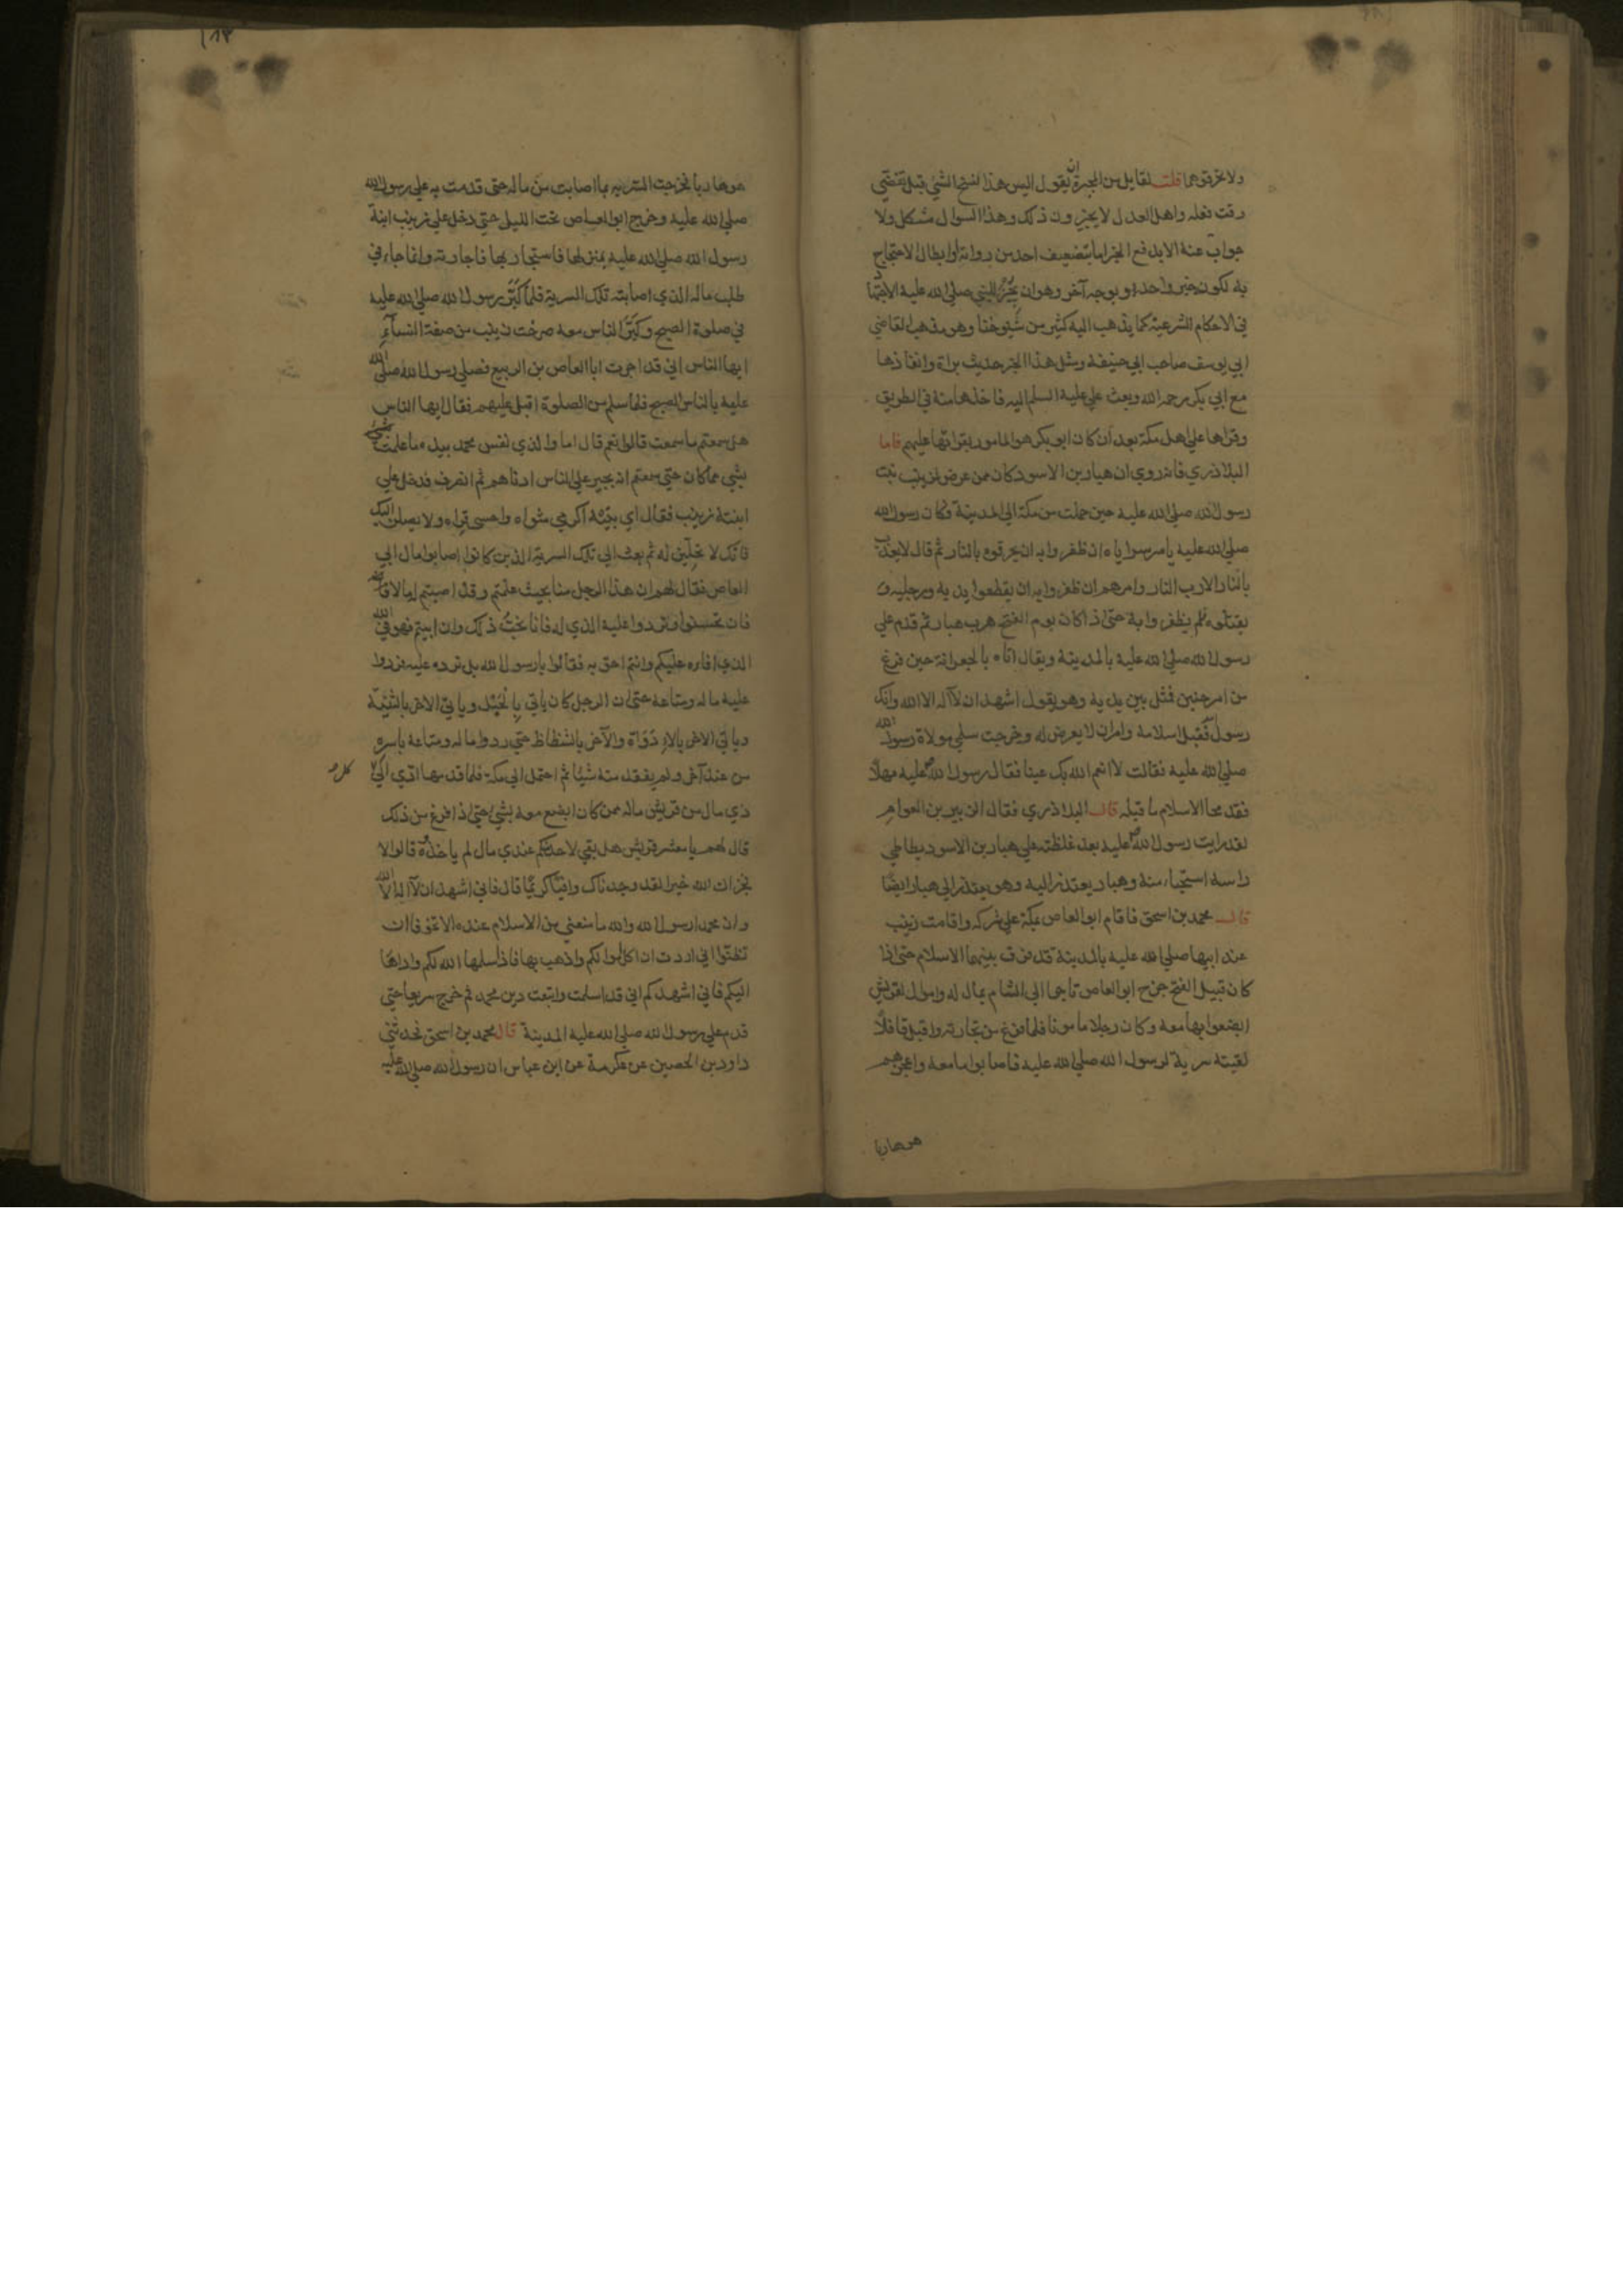 ولا تحرقوهما قلت لقايل من المجبرة ان يقول اليس هذا نسخ الشي قبل تقضي
وقت فعله واهل العدل لا يجيزون ذلك وهذا السوال مشكل ولا
جواب عنه الا بدفع الخبر اما بتضعيف احد من رواته او ابطال الاحتجاج
به لكونه خبر واحد او بوجه آخر وهو ان نجيز للنبي صلى الله عليه الاجتهاد
في الاحكام الشرعية كما يذهب اليه كثير من شيوخنا وهو مذهب القاضي
ابي يوسف صاحب ابي حنيفة ومثل هذا الخبر حديث براة وانفاذها
مع ابي بكر رحمه الله وبعث علي عليه السلم اليه فاخذها منه في الطريق
وقراها على اهل مكة بعد ان كان ابو بكر هو المامور بقراتها عليهم فاما
البلاذري فانه روي ان هبار بن الاسود كان ممن عرض لزينب بنت
رسول الله صلى الله عليه حين حملت من مكة الى المدينة وكان رسول الله
صلى الله عليه يامر سراياه ان ظفروا به ان يحرقوه بالنار ثم قال لا يعذب
بالنار الا رب النار وامرهم ان ظفروا به ان يقطعوا يديه ورجليه و
يقتلوه فلم يظفروا به حتى اذا كان يوم الفتح هرب هبار ثم قدم علي
رسول الله صلى الله عليه بالمدينة ويقال اتاه بالجعرانة حين فرغ
من امر حنين فمثل بين يديه وهو يقول اشهد ان لا اله الا الله وانك
رسول الله فقبل اسلامه وامر ان لا يعرض له وخرجت سلمي مولاة رسول الله
صلى الله عليه فقالت لا انعم الله بك عينا فقال رسول الله عليه مهلا
فقد محا الاسلام ما قبله قال البلاذري فقال الزبير بن العوام
لقد رايت رسول الله عليه بعد غلظته علي هبار بن الاسود يطاطي
راسه استحياء منه وهبار يعتذر اليه وهو يعتذر الى هبار ايضا
قال محمد بن اسحق فاقام ابو العاص بمكة علي شركه واقامت زينب
عند ابيها صلى الله عليه بالمدينة قد فرق بينهما الاسلام حتى اذا
كان قبيل الفتح خرج ابو العاص تاجرا الى الشام بمال له واموال لقريش
ابضعوا بها معه وكان رجلا مامونا فلما فرغ من تجارته واقبل قافلا
لقيته سرية لرسول الله صلى الله عليه فاصابوا ما معه واعجزهم
هو هاربا
هو هاربا فخرجت السرية بما اصابت من ماله حتى قدمت به علي رسول الله
صلى الله عليه وخرج ابو العاص تحت الليل حتى دخل علي زينب ابنة
رسول الله صلى الله عليه بمنزلها فاستجار بها فاجارته وانما جاء في
طلب ماله الذي اصابته تلك السرية فلما كبر رسول الله صلى الله عليه
في صلوة الصبح وكبر الناس معه صرخت زينب من صفة النساء
ايها الناس اني قد اجرت ابا العاص بن الربيع فصلى رسول الله صلى الله
عليه بالناس الصبح فلما سلم من الصلوة اقبل عليهم فقال ايها الناس
هل سمعتم ما سمعت قالوا نعم قال اما والذي نفس محمد بيده ما علمت
بشي مما كان حتى سمعتم انه يجير علي الناس ادناهم ثم انصرف فدخل علي
ابنته زينب فقال اي بنية اكرمي مثواه واحسني قراه ولا يصلن اليك
فانك لا تحلين له ثم بعث الي تلك السرية الذين كانوا اصابوا مال ابي
العاص فقال لهم ان هذا الرجل منا بحيث علمتم وقد اصبتم له مالا
فان تحسنوا وتردوا عليه الذي له فانا نحب ذلك وان ابيتم فهو في الله
الذي افاءه عليكم وانتم احق به فقالوا يا رسول الله بل نرده عليه فردوا
عليه ماله ومتاعه حتى ان الرجل كان ياتي بالحبل وياتي الاخر بالشنة
وياتي الاخر بالاداوة والآخر بالشظاظ حتى ردوا ماله ومتاعه باسره
من عند آخره ولم يفقد منه شيئا ثم احتمل الي مكة فلما قدمها ادي الي كل
ذي مال من قريش ماله ممن كان ابضع معه بشي حتى اذا فرغ من ذلك
قال لهم يا معشر قريش هل بقي لاحد منكم عندي مال لم ياخذه قالوا لا
فجزاك الله خيرا لقد وجدناك وافيا كريما قال فاني اشهد ان لا اله الا الله
وان محمدا رسول الله والله ما منعني من الاسلام عنده الا تخوفا ان
تظنوا اني اردت ان اكل اموالكم واذهب بها فاذ اسلمها الله لكم واداها
اليكم فاني اشهدكم اني قد اسلمت واتبعت دين محمد ثم خرج سريعا حتى
قدم علي رسول الله صلى الله عليه المدينة قال محمد بن اسحق فحدثني
داود بن الحصين عن عكرمة عن ابن عباس ان رسول الله صلى الله عليه